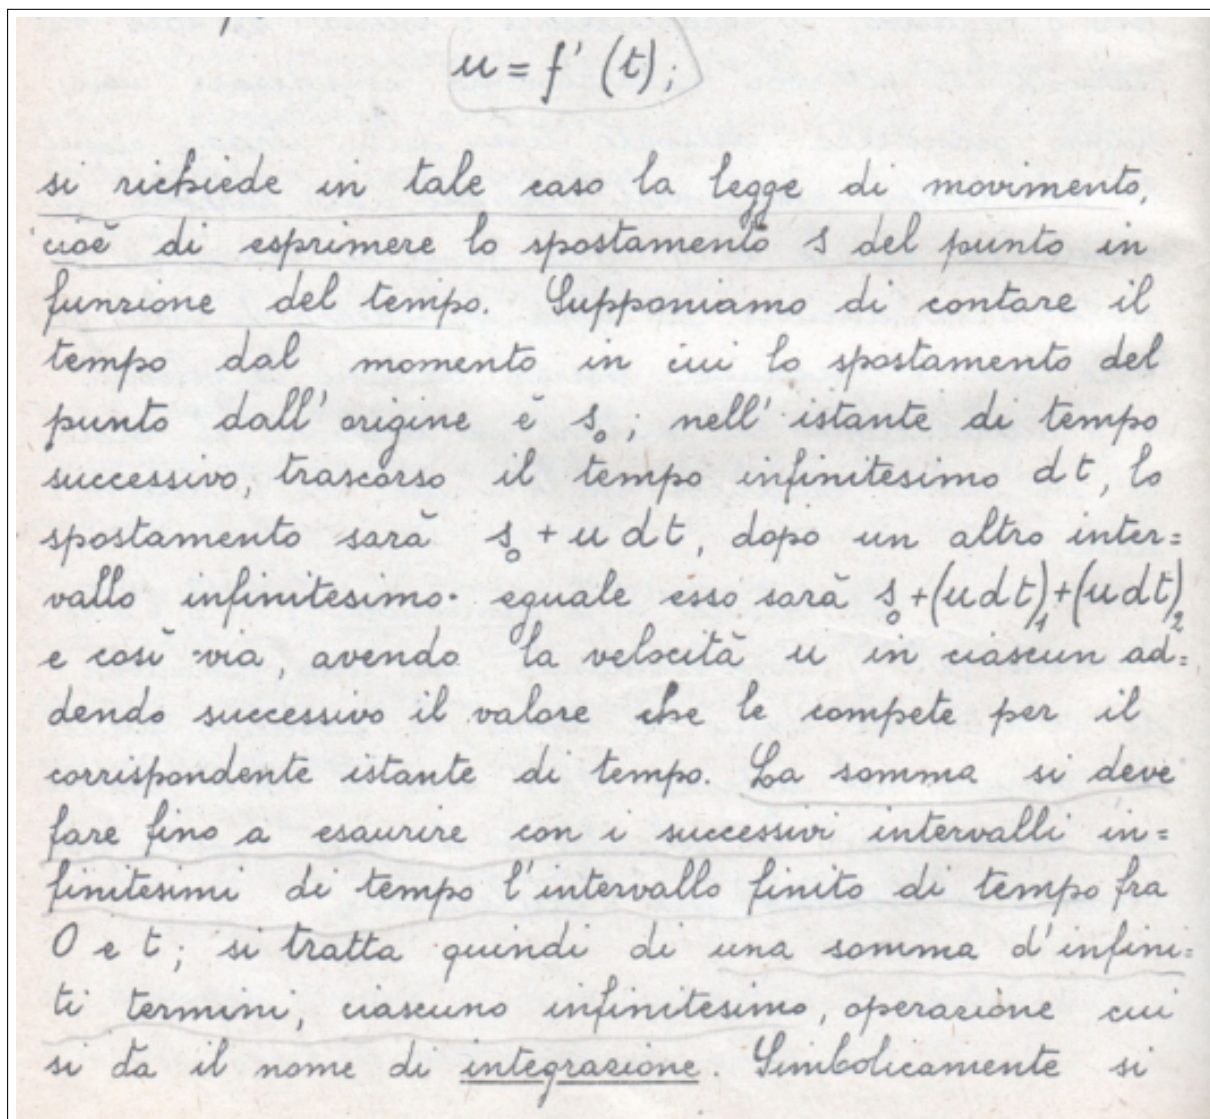 u = f' (t);
si richiede in tale caso la legge di movimento,
cioè di esprimere lo spostamento s del punto in
funzione del tempo. Supponiamo di contare il
tempo dal momento in cui lo spostamento del
punto dall'origine è s₀; nell'istante di tempo
successivo, trascorso il tempo infinitesimo dt, lo
spostamento sarà s₀ + u dt, dopo un altro inter=
vallo infinitesimo eguale esso sarà s₀ + (u dt)₁ + (u dt)₂
e così via, avendo la velocità u in ciascun ad=
dendo successivo il valore che le compete per il
corrispondente istante di tempo. La somma si deve
fare fino a esaurire con i successivi intervalli in=
finitesimi di tempo l'intervallo finito di tempo fra
0 e t; si tratta quindi di una somma d'infini=
ti termini, ciascuno infinitesimo, operazione cui
si dà il nome di integrazione. Simbolicamente si